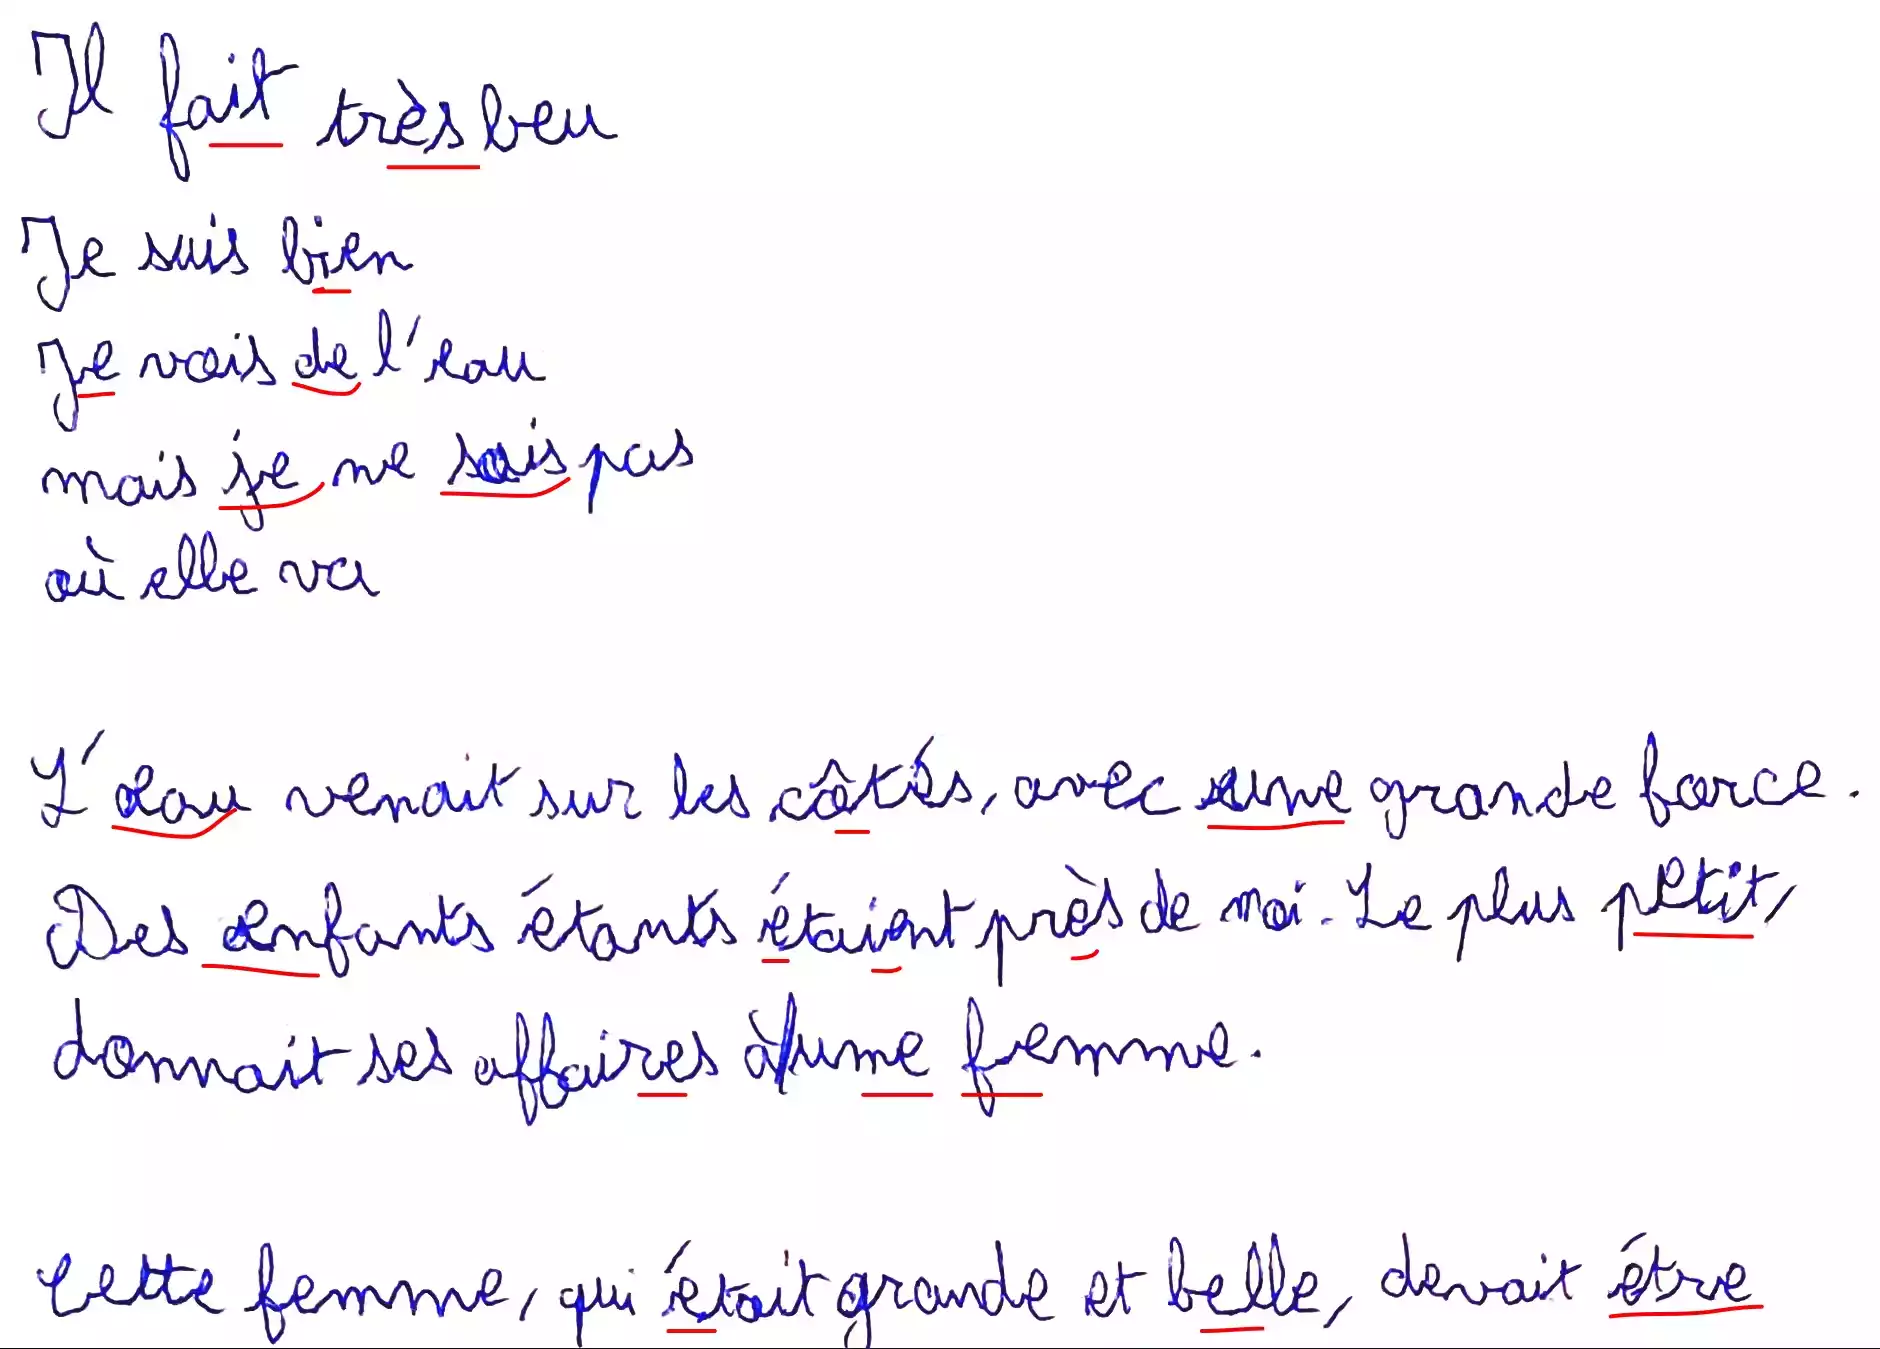 Il fait très beu
Je suis bien
Je vois de l'eau
mais je ne sais pas
où elle va
L'eau venait sur les côtés, avec une grande force.
Des enfants étants étaient près de moi. Le plus petit,
donnait ses affaires à une femme.
Cette femme, qui était grande et belle, devait être